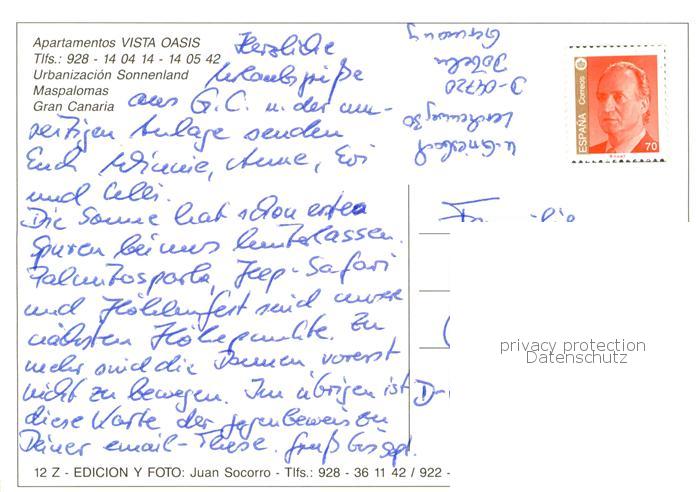 Apartamentos VISTA OASIS
Tlfs.: 928 - 14 04 14 - 14 05 42
Urbanización Sonnenland
Maspalomas
Gran Canaria
Herzliche
Urlaubsgrüße
aus G.C. u. der um-
seitigen Anlage senden
Euch Winnie, Anne, Evi
und Ulli.
Die Sonne hat schon erste
Spuren bei uns hinterlassen.
Palmitospark, Jeep-Safari
und Höhlenfest sind unsere
nächsten Höhepunkte. Zu
mehr sind die Damen vorerst
nicht zu bewegen. Im übrigen ist
diese Karte der Gegenbeweis zu
Deiner email-These. Gruß bis Sept.
12 Z - EDICION Y FOTO: Juan Socorro - Tlfs.: 928 - 36 11 42 / 922 -
D-04720
Döbeln
Germany
ESPAÑA Correos
70
D-
privacy protection
Datenschutz